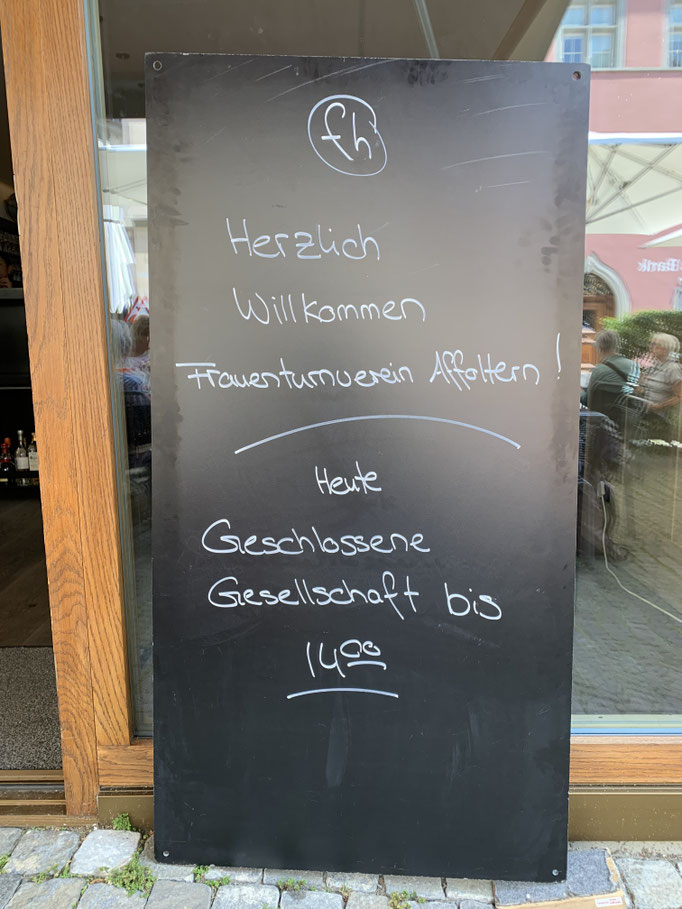 fh
Herzlich
Willkommen
Frauenturnverein Affoltern!
Heute
Geschlossene
Gesellschaft bis
1400
Bank